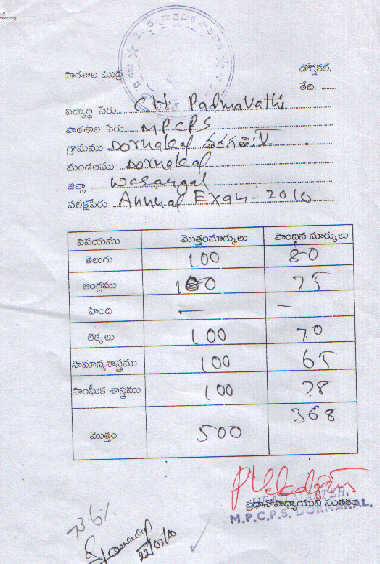 పాఠశాల ముద్ర
తేది
విద్యార్థి పేరు. CH. Padmavathi
పాఠశాల పేరు. M.P.C.P.S
గ్రామము Dornakal తరగతి V
మండలము Dornakal
జిల్లా Warangal
పరీక్షపేరు Annual Exam - 2010
విషయము మొత్తంమార్కులు పొందిన మార్కులు
తెలుగు 100 80
ఆంగ్లము 100 75
హింది — –
లెక్కలు 100 70
సామాన్యశాస్త్రము 100 65
సాంఘీక శాస్త్రము 100 78
మొత్తం 500 368
73.6%
ప్రధానోపాధ్యాయుని సంతకం
M.P.C.P.S. DORNAKAL.